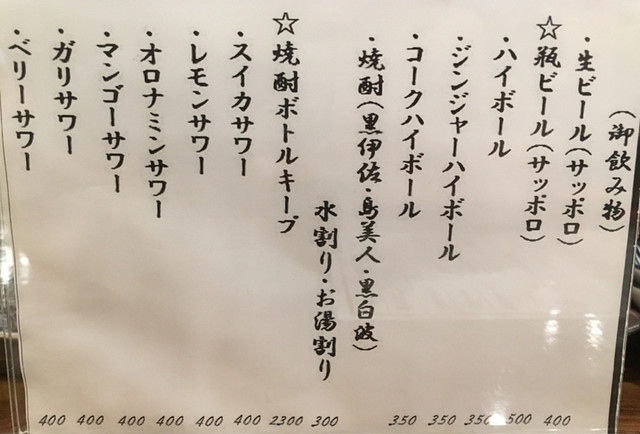 (御飲み物)
・生ビール(サッポロ) 400
☆瓶ビール(サッポロ) 500
・ハイボール 350
・ジンジャーハイボール 350
・コークハイボール 350
・焼酎(黒伊佐・島美人・黒白波)
水割り・お湯割り 300
☆焼酎ボトルキープ 2300
・スイカサワー 400
・レモンサワー 400
・オロナミンサワー 400
・マンゴーサワー 400
・ガリサワー 400
・ベリーサワー 400